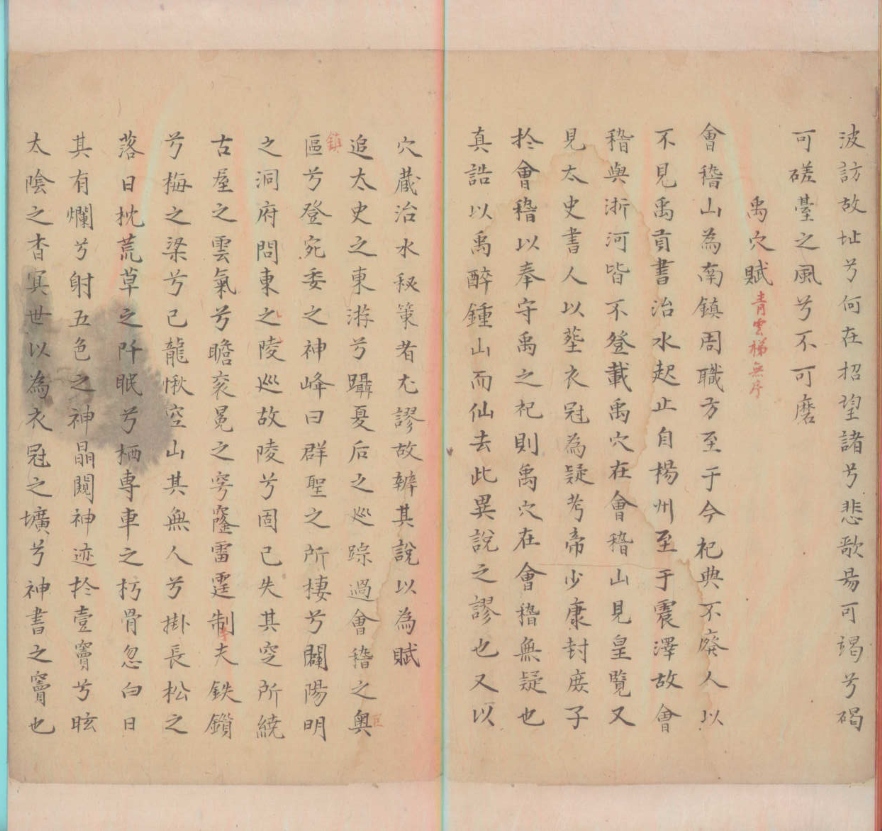 波訪故址兮何在招望諸兮悲歌曷可竭兮碣
可磋臺之風兮不可磨
禹穴賦青雲梯無序
會稽山為南鎮周職方至于今祀典不廢人以
不見禹貢書治水起止自楊州至于震澤故會
稽與浙河皆不登載禹穴在會稽山見皇覽又
見太史書人以塟衣冠為疑考帝少康封庶子
於會稽以奉守禹之祀則禹穴在會稽無疑也
真誥以禹醉鍾山而仙去此異說之謬也又以
穴藏治水秘策者尤謬故辨其說以為賦
追太史之東游兮躡夏后之巡踪過會稽之奥
區兮登宛委之神峰曰群聖之所棲兮闢陽明
之洞府問東之陵巡故陵兮固已失其空所繞
古屋之雲氣兮瞻衮冕之穹窿雷霆制夫鉄鎖
兮梅之梁兮已龍愀空山其無人兮掛長松之
落日枕荒草之阡眠兮栖專車之朽骨忽白日
其有爛兮射五色之神晶闖神迹於壹竇兮眩
太陰之杳冥世以為衣冠之壙兮神書之竇也